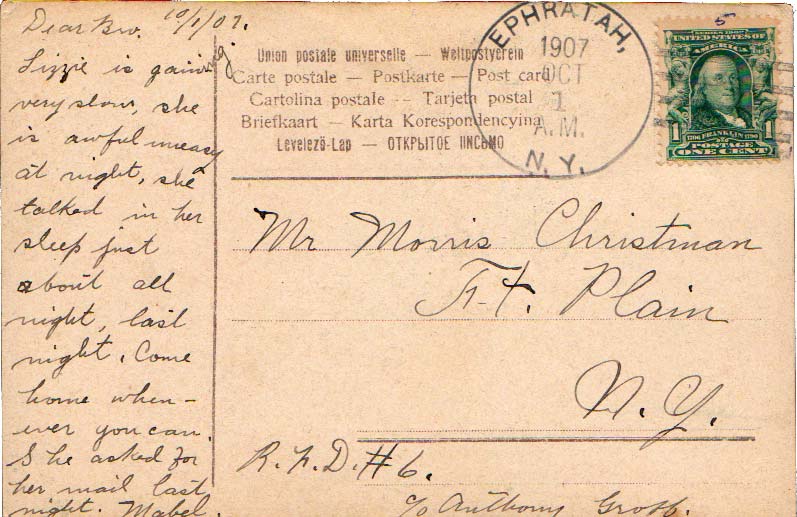 Dear Bro. 10/1/07.
Lizzie is gaining
very slow, she
is awful uneasy
at night, she
talked in her
sleep just
about all
night, last
night. Come
home when-
ever you can.
She asked for
her mail last
night. Mabel.
Union postale universelle — Weltpostverein
Carte postale — Postkarte — Post card
Cartolina postale -- Tarjeta postal
Briefkaart — Karta Korespondencyjna
Levelező-Lap — ОТКРЫТОЕ ПИСЬМО
EPHRATAH,
1907
OCT
1
A.M.
N.Y.
5
SERIES 1902
UNITED STATES OF
AMERICA
1 FRANKLIN 1
POSTAGE
ONE CENT
Mr Morris Christman
Ft. Plain
N.Y.
R.F.D. #6.
c/o Anthony Groff.